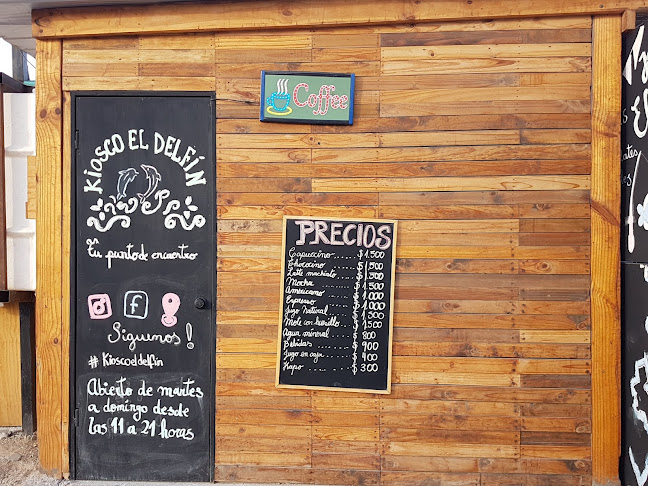 KIOSCO EL DELFÍN
Tu punto de encuentro
Siguenos!
#Kioscoeldelfin
Abierto de martes
a domingo desde
las 11 a 21 horas
Coffee
PRECIOS
Capuccino.....$1.500
Chococino.....$1.500
Latte machiato..$1.500
Mocha.....$1.500
Americano.....$1.000
Espresso.....$1.000
Jugo Natural.....$1.500
Mote con huesillo..$1.500
Agua mineral.....$800
Bebidas.....$900
Jugo en caja.....$400
Kapo.....$300